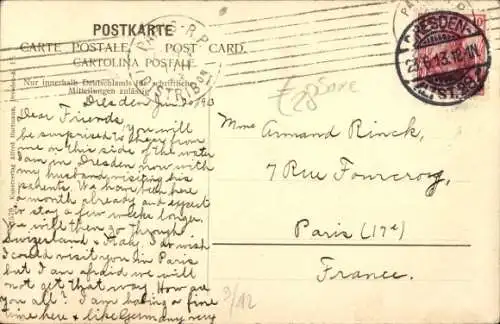 POSTKARTE
CARTE POSTALE. POST CARD.
CARTOLINA POSTALE
Nur innerhalb Deutschlands für schriftliche
Mitteilungen zulässig
Dresden
Dear Friends, you will
be surprised to hear from
me on this side of the water
I am in Dresden now with
my husband visiting his
parents. We have been here
a month already and expect
to stay a few weeks longer.
We will then go through
Switzerland & Italy. I do wish
I could visit you in Paris
but I am afraid we will
not get that way. How are
you all? I am having a fine
time here & like Germany very
Mme Armand Rinck,
7 Rue Fourcroy,
Paris (17e)
France.
3/12
DRESDEN-
ALTST.
PARIS R.P.
DISTRIBON